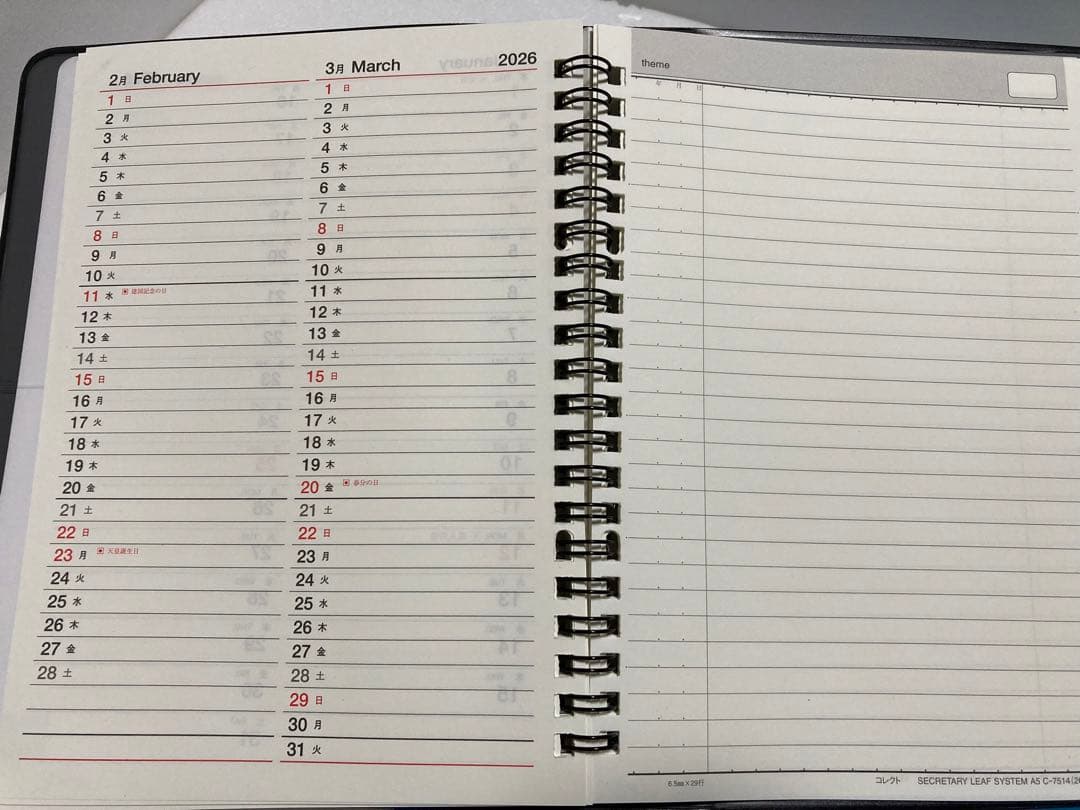 2月 February
1 日
2 月
3 火
4 水
5 木
6 金
7 土
8 日
9 月
10 火
11 水 建国記念の日
12 木
13 金
14 土
15 日
16 月
17 火
18 水
19 木
20 金
21 土
22 日
23 月 天皇誕生日
24 火
25 水
26 木
27 金
28 土
3月 March 2026
1 日
2 月
3 火
4 水
5 木
6 金
7 土
8 日
9 月
10 火
11 水
12 木
13 金
14 土
15 日
16 月
17 火
18 水
19 木
20 金 春分の日
21 土
22 日
23 月
24 火
25 水
26 木
27 金
28 土
29 日
30 月
31 火
theme
年 月 日
6.5㎜×29行
コレクト SECRETARY LEAF SYSTEM A5 C-7514